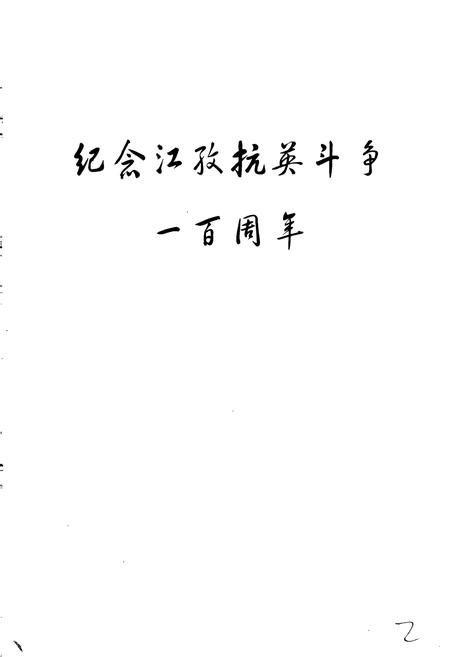 纪念江孜抗英斗争
一百周年